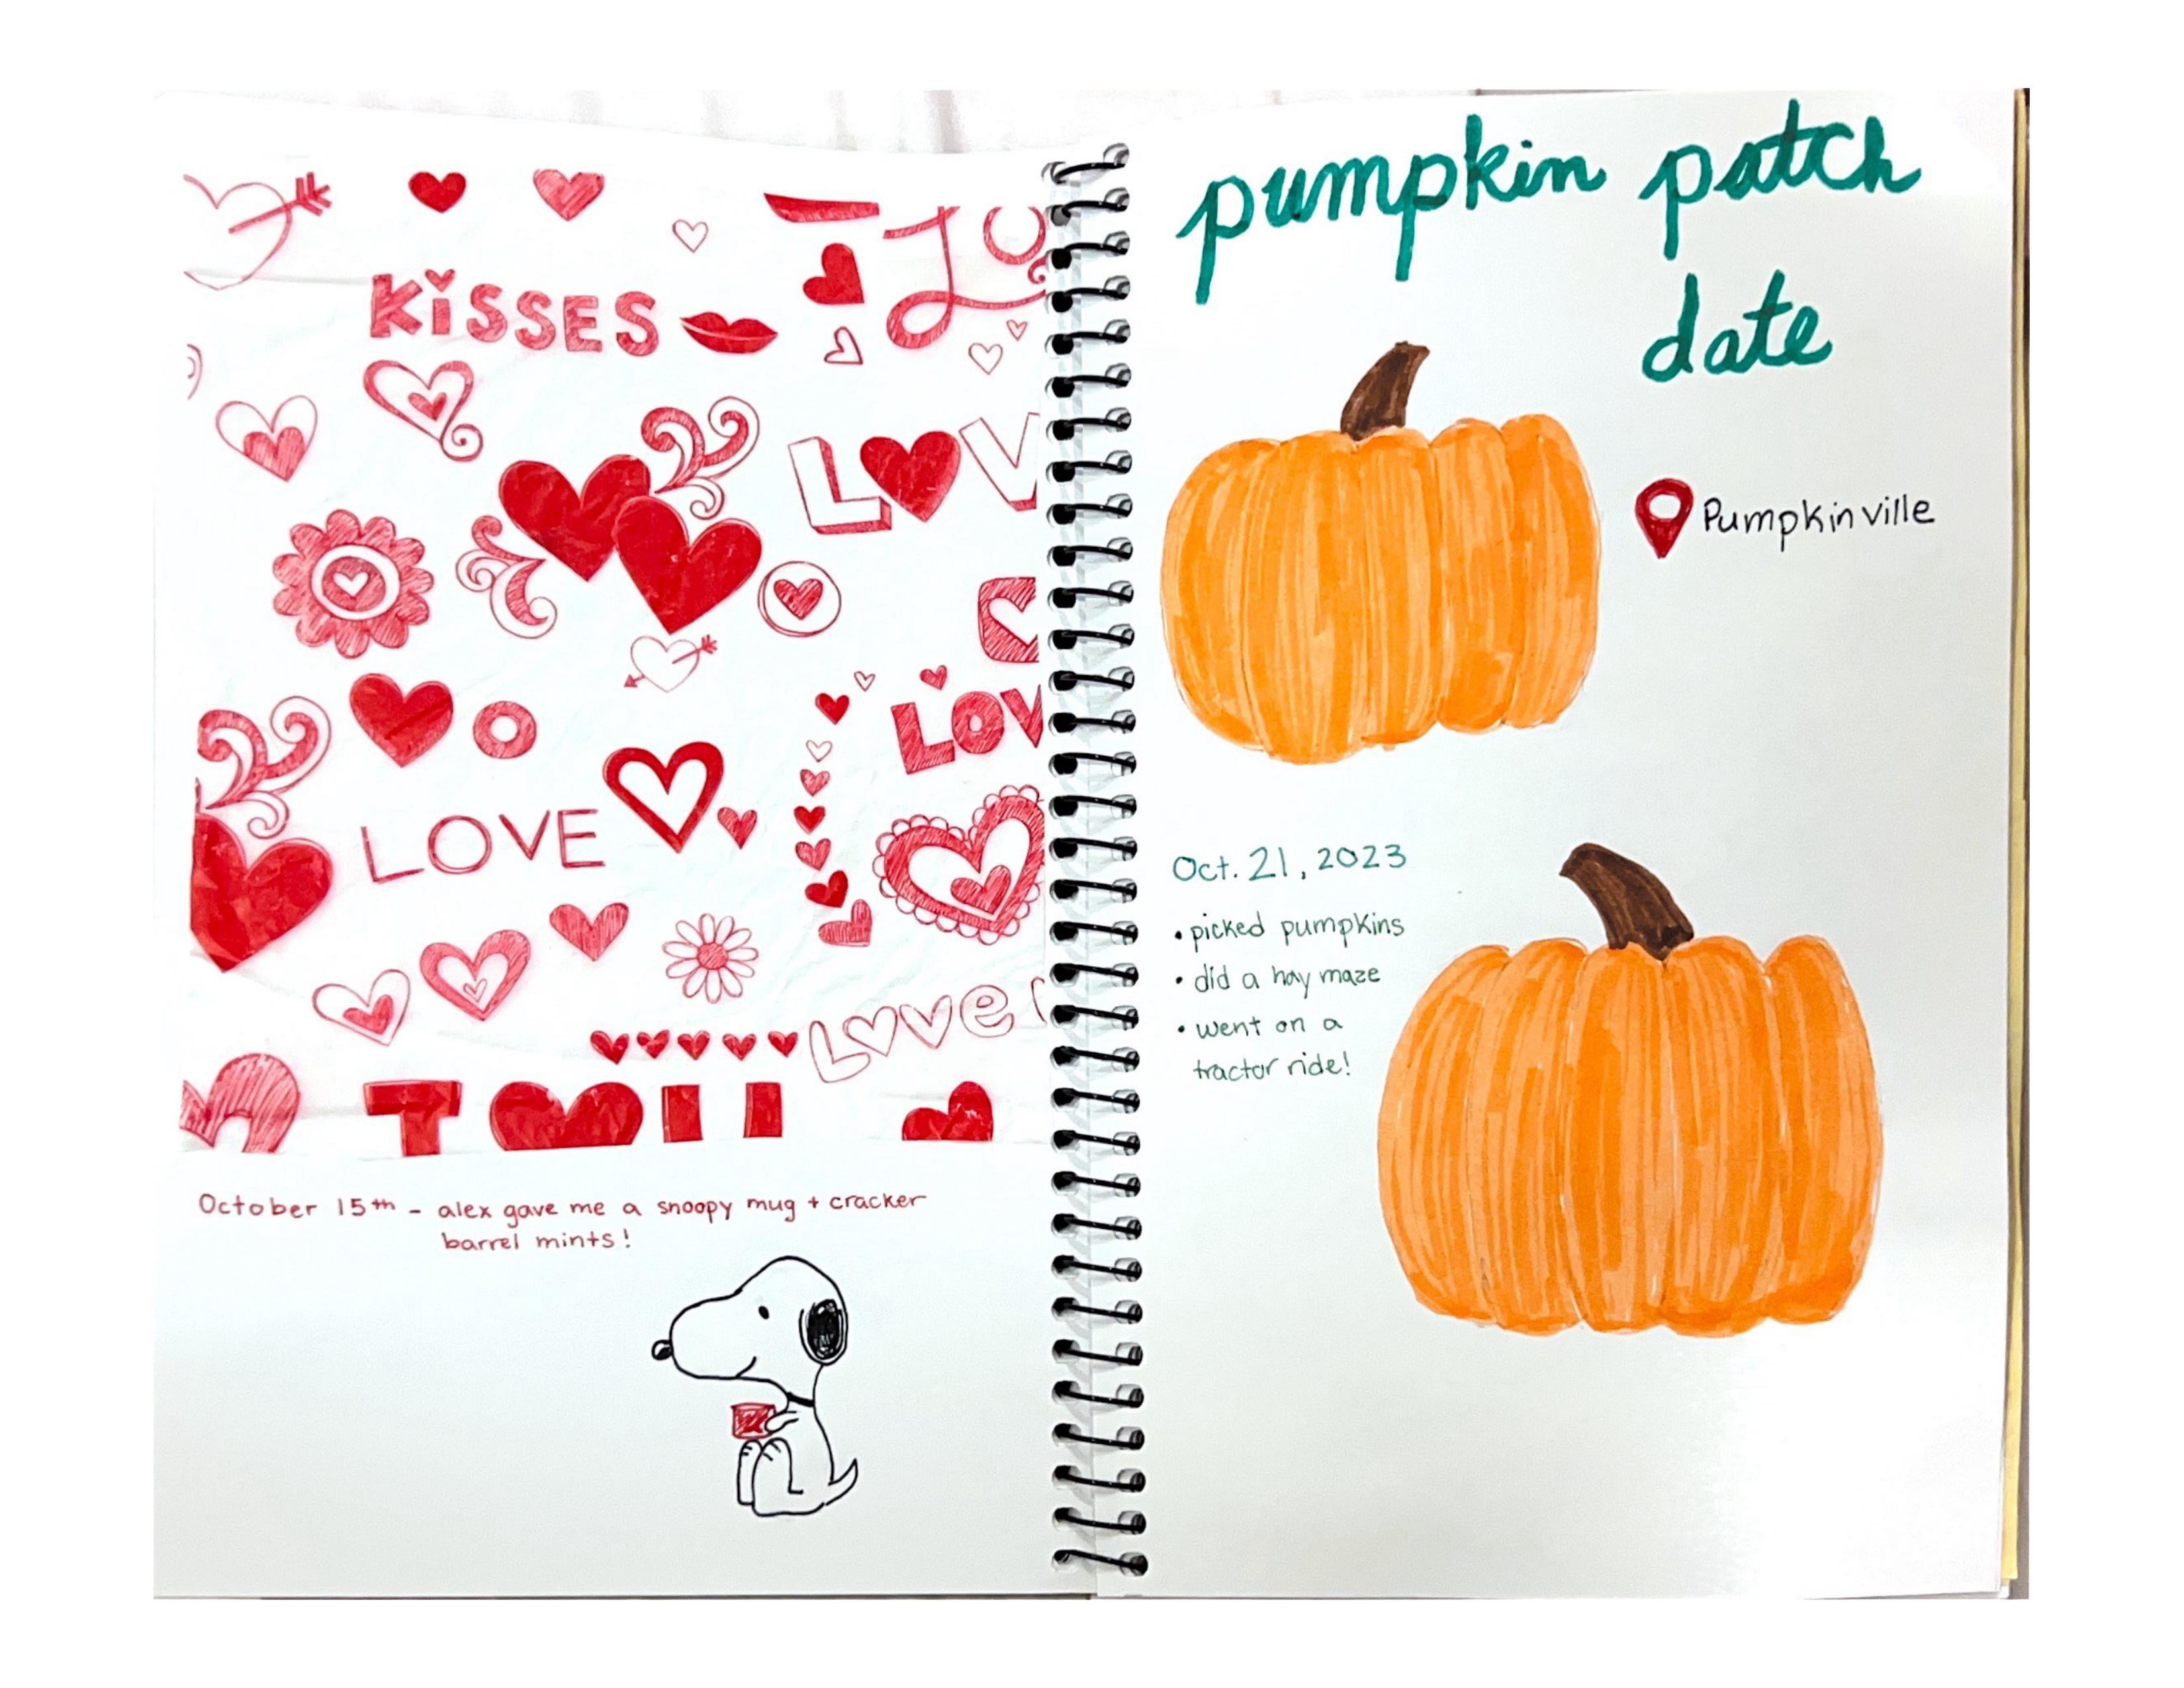 KISSES
LOV
LOV
LOVE
Love
October 15th - alex gave me a snoopy mug + cracker
barrel mints!
pumpkin patch
date
Pumpkinville
Oct. 21, 2023
• picked pumpkins
• did a hay maze
• went on a
tractor ride!